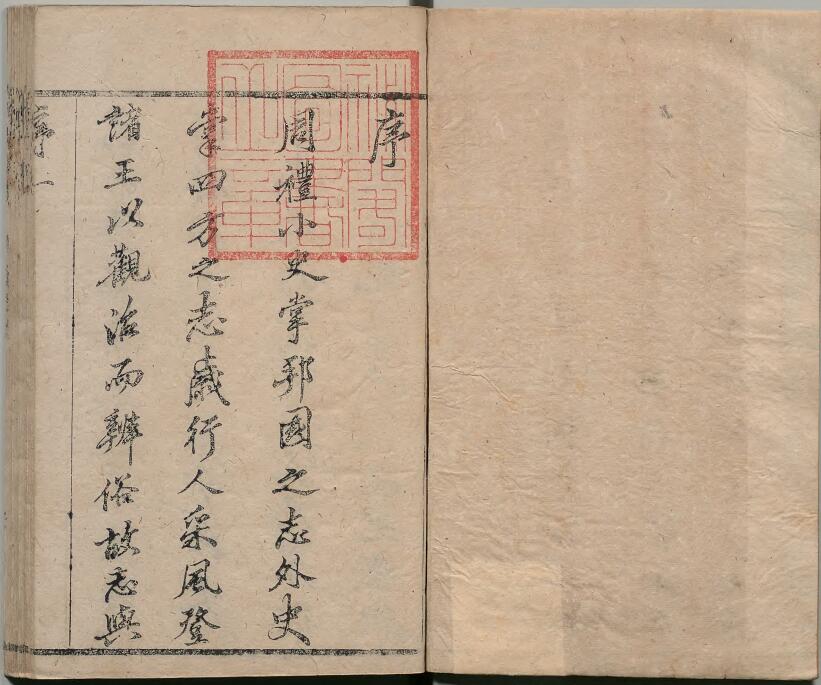 序
周禮小史掌邦國之志外史
掌四方之志歲行人采風登
諸王以觀治而辨俗故志與
序 一